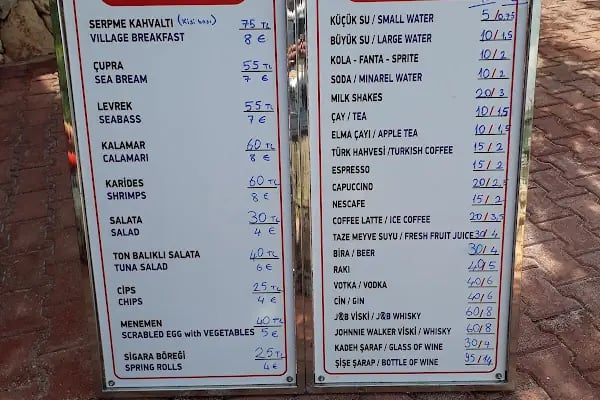 SERPME KAHVALTI (Kişi başı) 75 TL
VILLAGE BREAKFAST 8 €
ÇUPRA 55 TL
SEA BREAM 7 €
LEVREK 55 TL
SEABASS 7 €
KALAMAR 60 TL
CALAMARI 8 €
KARİDES 60 TL
SHRIMPS 8 €
SALATA 30 TL
SALAD 4 €
TON BALIKLI SALATA 40 TL
TUNA SALAD 6 €
CİPS 25 TL
CHIPS 4 €
MENEMEN 40 TL
SCRABLED EGG with VEGETABLES 5 €
SİGARA BÖREĞİ 25 TL
SPRING ROLLS 4 €
KÜÇÜK SU / SMALL WATER 5/0,75
BÜYÜK SU / LARGE WATER 10/1,5
KOLA - FANTA - SPRITE 10/2
SODA / MINAREL WATER 10/2
MILK SHAKES 20/3
ÇAY / TEA 10/1,5
ELMA ÇAYI / APPLE TEA 10/1,5
TÜRK HAHVESİ /TURKISH COFFEE 15/2
ESPRESSO 15/2
CAPUCCINO 20/2,5
NESCAFE 15/2
COFFEE LATTE / ICE COFFEE 20/3,5
TAZE MEYVE SUYU / FRESH FRUIT JUICE 30/4
BİRA / BEER 30/4
RAKI 40/5
VOTKA / VODKA 40/6
CİN / GIN 40/6
J&B VİSKİ / J&B WHISKY 60/8
JOHNNIE WALKER VİSKİ / WHISKY 60/8
KADEH ŞARAF / GLASS OF WINE 30/4
ŞİŞE ŞARAP / BOTTLE OF WINE 95/14